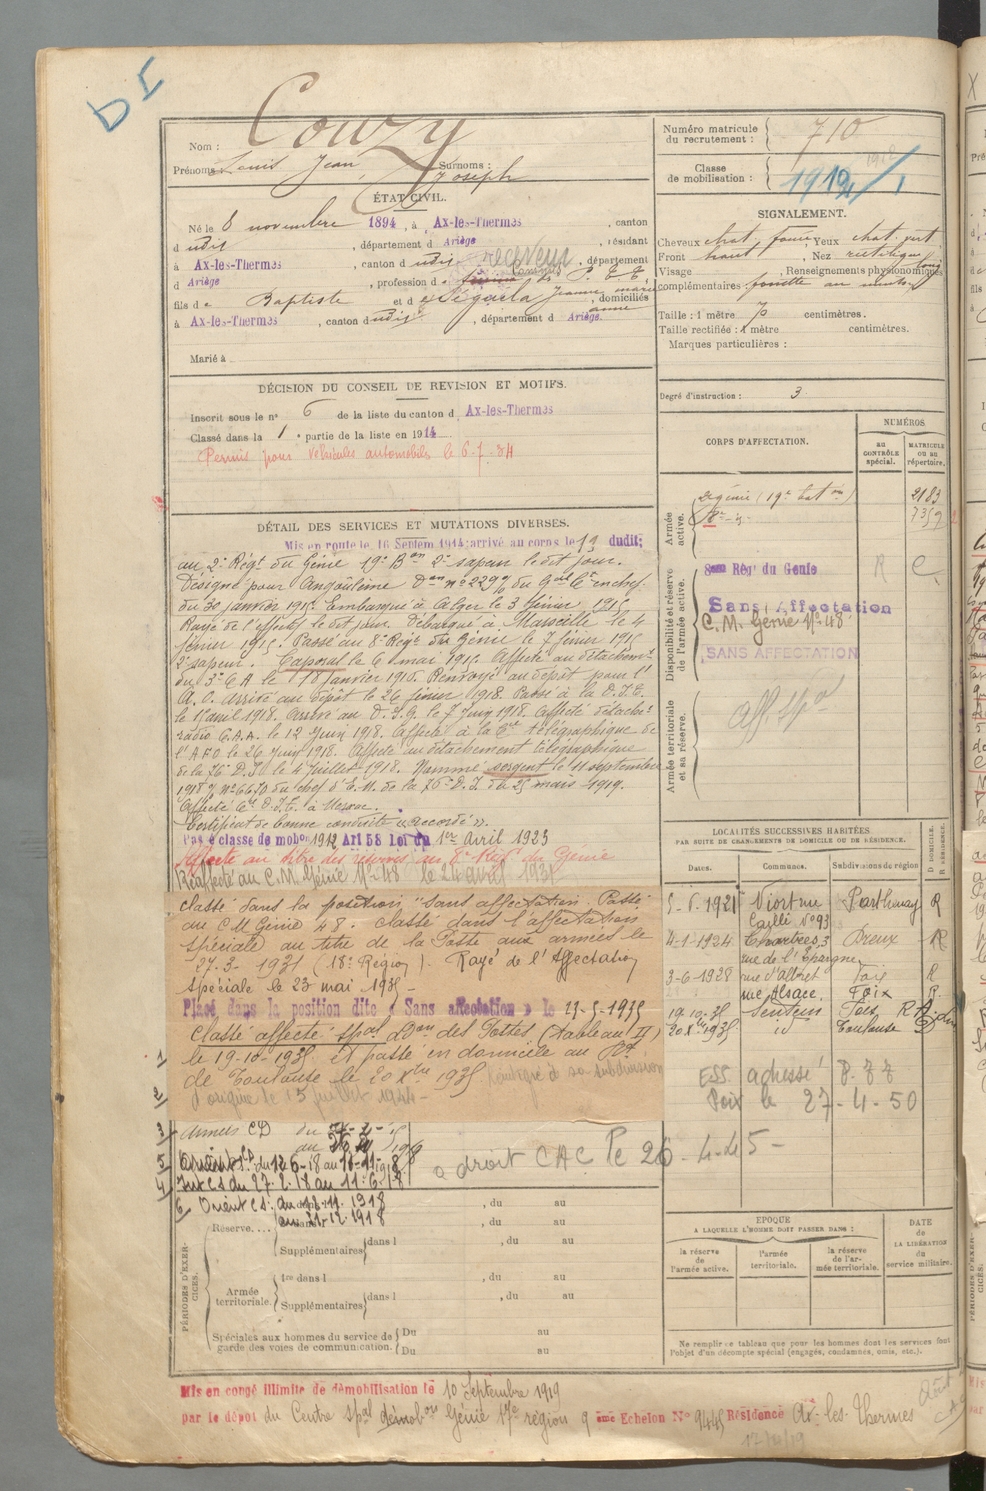 DI
Nom : Couzy
Prénoms : Louis Jean Surnoms : Joseph
ÉTAT CIVIL.
Né le 8 novembre 1894, à Ax-les-Thermes, canton
d udit, département d Ariège, résidant
à Ax-les-Thermes, canton d udit, département
receveur
d Ariège, profession de Commis des P. T. T.
fils de Baptiste et de Ségaéla Jeanne marie, domiciliés
anne
à Ax-les-Thermes, canton dudit, département d Ariège.
Marié à
DÉCISION DU CONSEIL DE REVISION ET MOTIFS.
Inscrit sous le n° 6 de la liste du canton d Ax-les-Thermes
Classé dans la 1e partie de la liste en 1914
Permis pour véhicules automobiles le 6-7-34
DÉTAIL DES SERVICES ET MUTATIONS DIVERSES.
Mis en route le 16 Septem 1914; arrivé au corps le 19 dudit;
au 2e Régt du Génie 19e Bon 2e sapeur le dit jour.
Désigné pour Angoulême Don n° 2292 du Gal Ct en chef
du 30 janvier 1915. Embarqué à Alger le 3 février 1915
Rayé de l'effectif le dit jour. Débarqué à Marseille le 4
février 1915. Passé au 8e Régt du Génie le 7 février 1915
2e sapeur. Caporal le 6 mai 1915. Affecté au détachemt
du 3e C A le 18 janvier 1916. Renvoyé au dépôt pour l'
A. O. Arrivé au dépôt le 26 février 1918. Passé à la D.T.E.
le 1er avril 1918. Arrivé au D.T.G. le 7 Juin 1918. Affecté détachet
radio C.A.A. le 12 Juin 1918. Affecté à la Cie télégraphique de
l'AFO le 26 Juin 1918. Affecté au détachement télégraphique
de la 76e D.I. le 4 Juillet 1918. Nommé sergent le 11 septembre
1918 du chef d'E.M. de la 76e D.I. du 25 mars 1919.
Affecté
Certificat de bonne conduite "accordé".
Passé classe de mobon 1912 Art 58 Loi du 1er Avril 1923
Affecté au titre des réserves au 8e Régt du Génie
Réaffecté au C.M. Génie N° 48 le 24 avril 1931
classé dans la position "sans affectation. Passé
au C M Génie 48. classé dans l'affectation
spéciale au titre de la Poste aux armées le
27-3-1931 (18e Région). Rayé de l'Affectation
spéciale le 23 mai 1935 -
Placé dans la position dite « Sans affectation » le 23-5-1935
Classé affecté spal Don des Postes (tableau II)
le 19-10-1935 et passé en domicile au Bt
de Toulouse le 20 Xbre 1935 Réintégré à sa subdivision
d'origine le 15 juillet 1944 -
1
2
3 Armées CD
5
4 Int CS du 27-2-18 au 11-6-18
6 Orient CS: du 12-11-1918
a droit CAC le 26-4-45 -
PÉRIODES D'EXERCICES.
Réserve.... , du au
, du au
Supplémentaires dans l , du au
Armée territoriale. 1re dans l , du au
Supplémentaires dans l , du au
Spéciales aux hommes du service de garde des voies de communication. Du au
Du au
Mis en congé illimité de démobilisation le 10 Septembre 1919
par le dépot du Centre spal démobon Génie 17e région 9 ème Echelon N° 9445 Résidence Ax-les-Thermes
Numéro matricule du recrutement : 710
Classe de mobilisation : 1912
SIGNALEMENT.
Cheveux chat. foncé, Yeux chat. vert.
Front haut, Nez rectiligne
long
Visage , Renseignements physionomiques
complémentaires : fossette au menton
Taille : 1 mètre 70 centimètres.
Taille rectifiée : 1 mètre centimètres.
Marques particulières :
Degré d'instruction : 3
CORPS D'AFFECTATION.
NUMÉROS
au CONTRÔLE spécial.
MATRICULE ou au répertoire.
Armée active.
2e génie (19e Bat on) 2183
8e - g. 7359
Disponibilité et réserve de l'armée active.
8ème Régt du Génie R C
Sans Affectation
C. M. Génie N° 48
SANS AFFECTATION
Armée territoriale et sa réserve.
Aff. spal
LOCALITÉS SUCCESSIVES HABITÉES
PAR SUITE DE CHANGEMENTS DE DOMICILE OU DE RÉSIDENCE.
Dates. Communes. Subdivisions de région D DOMICILE. R RÉSIDENCE.
5-6-1921 Niort rue Parthenay R
N° 93
4-1-1924 Chartres, 3 Dreux R
rue de l'Epargne
3-6-1928 rue d'Albret Foix R
rue Alsace. Foix R.
19-10-35 Sentein Foix R
20 Xbre 1935 id Toulouse D
ESS. adressé P.T.T
Foix le 27-4-50
EPOQUE
A LAQUELLE L'HOMME DOIT PASSER DANS :
la réserve de l'armée active.
l'armée territoriale.
la réserve de l'armée territoriale.
DATE de LA LIBÉRATION du service militaire.
Ne remplir ce tableau que pour les hommes dont les services font
l'objet d'un décompte spécial (engagés, condamnés, omis, etc.).